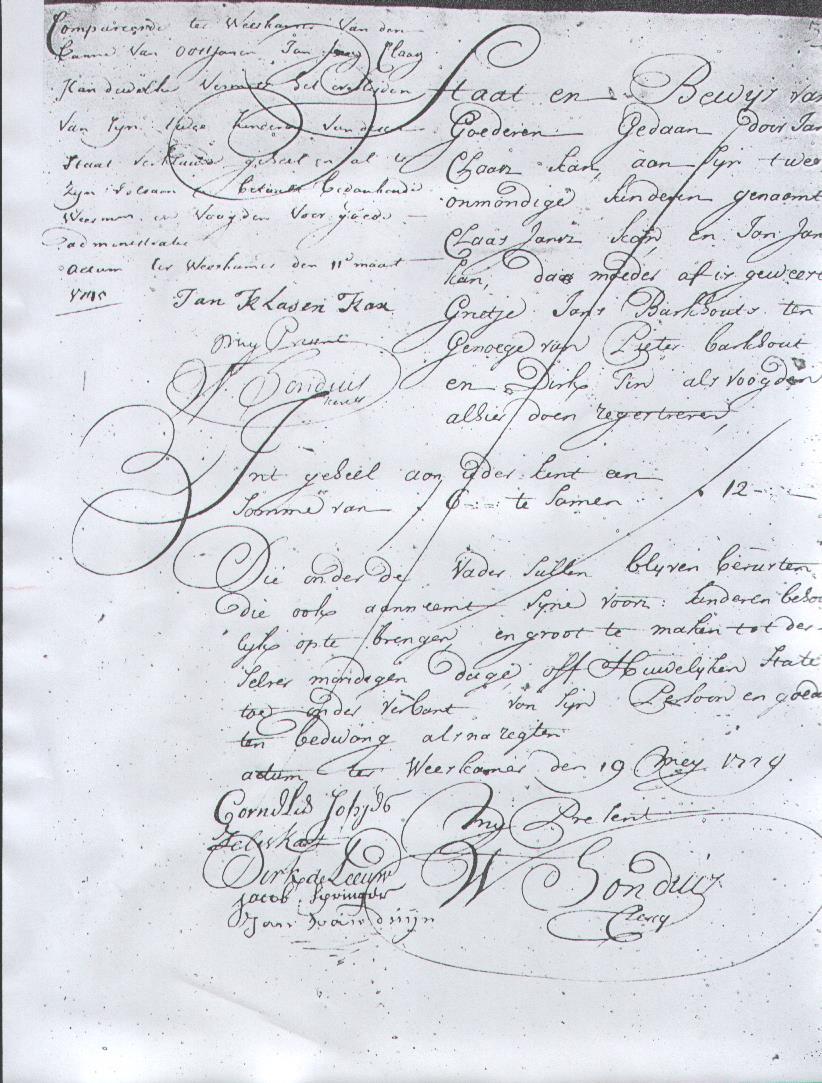 Compareerde ter Weeskamer van den
banne van Oostzanen Jan Claas
Kan dewelke vermits het overlijden
van Syn twee kinderen van desen
Staat verklaarde geheel en al te
Zyn voldaan en betaalt bedankende
Weesmen en Voogden voor goede
administratie
actum ter Weeskamer den 11e maart
Jan Klasen Kan
my Present
W Sonduis
Staat en Bewys van
Goederen Gedaan door Jan
Claasz kan, aan Syn twee
onmondige kinderen genaamt
Claas Jansz kan en Jan Jan
kan, daar moeder af is geweest
Grietje Jans Barkhouts ten
Genoege van Pieter barkhout
en Dirk Tin als voogden
alhier doen registreren,
Int geheel aan yder kint een
Somme van 6-- te Samen 12--
Die onder de Vader Sullen blyven berusten
die ook aanneemt Syne voorz: kinderen behoo
lyk op te brengen, en groot te maken tot der
Selver mondigen dage, off Huwelyken State
toe onder verbant van Syn Persoon en goed
ten bedwang als na regten
actum ter Weeskamer den 19 Mey 1779
Cornelis
Dirk de Leeuw
Jacob Springer
Jan van duijn
My Present
W Sonduis
Clercq